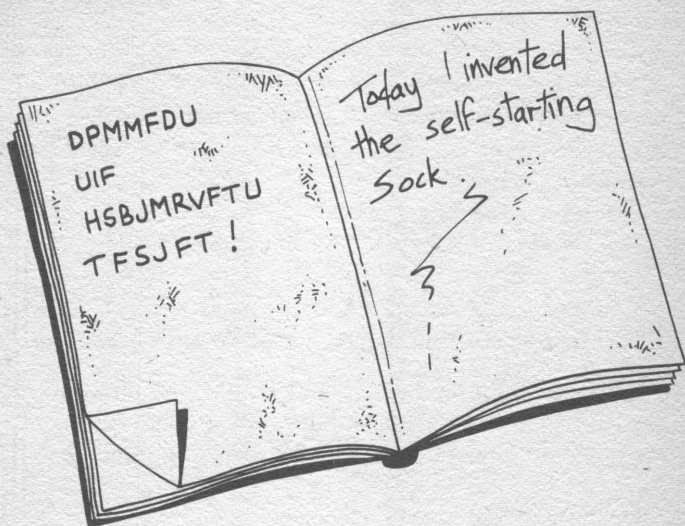 DPMMFDU
UIF
HSBJMRVFTU
TFSJFT!
Today I invented
the self-starting
Sock.